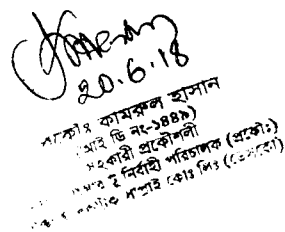 20.6.18
প্রকৌঃ কামরুল হাসান
(আই ডি নং-১৪৪৯)
সহকারী প্রকৌশলী
টু নির্বাহী পরিচালক (প্রকৌঃ)
সাপ্লাই কোঃ লিঃ (ডেসকো)